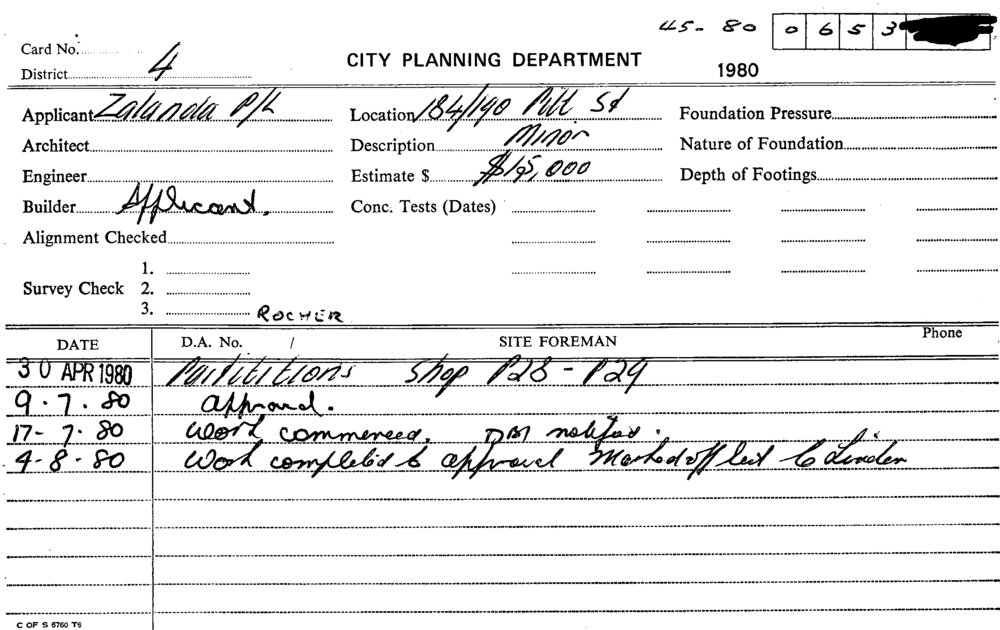 45-80 0 6 5 3
Card No.
District 4
CITY PLANNING DEPARTMENT
1980
Applicant Zalanda P/L
Location 184/190 Pitt St
Foundation Pressure
Architect
Description Minor
Nature of Foundation
Engineer
Estimate $ $195,000
Depth of Footings
Builder Applicant.
Conc. Tests (Dates)
Alignment Checked
1.
Survey Check 2.
3. ROCHER
DATE D.A. No. / SITE FOREMAN Phone
30 APR 1980 Partititions Shop P28 - P29
9.7.80 approved.
17-7.80 work commenced. notified.
4-8-80 Work completed to approval Marked off list
C OF S 6760 T6